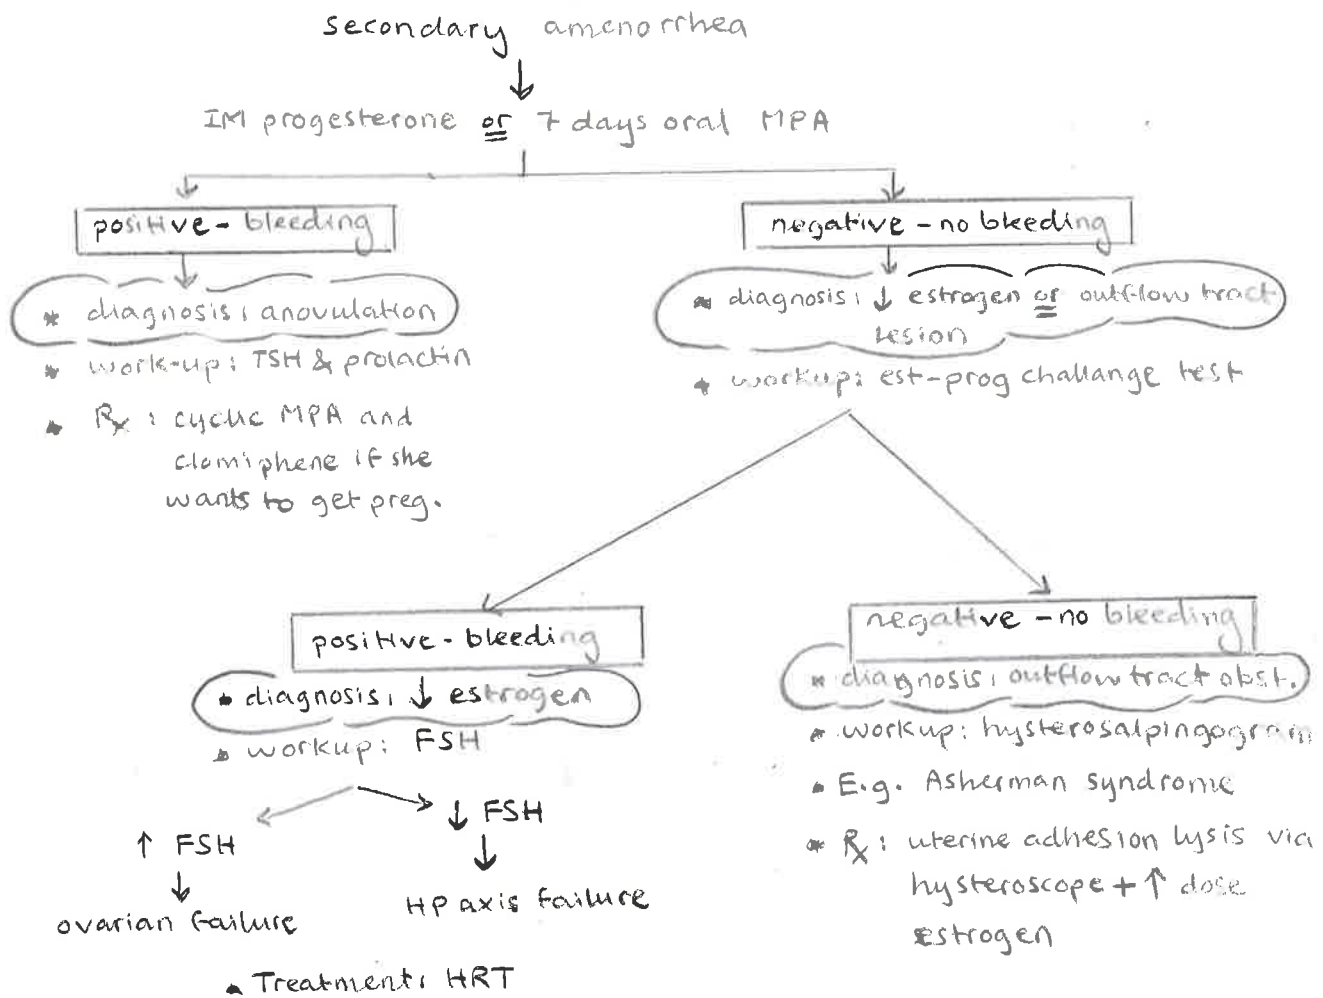 secondary amenorrhea
IM progesterone or 7 days oral MPA
positive - bleeding
* diagnosis: anovulation
* work-up: TSH & prolactin
* Rx: cyclic MPA and
clomiphene if she
wants to get preg.
negative - no bleeding
* diagnosis: ↓ estrogen or outflow tract
lesion
* workup: est-prog challange test
positive - bleeding
* diagnosis: ↓ estrogen
* workup: FSH
↑ FSH
ovarian failure
↓ FSH
HP axis failure
* Treatment: HRT
negative - no bleeding
* diagnosis: outflow tract obst.
* workup: hysterosalpingogram
* E.g. Asherman syndrome
* Rx: uterine adhesion lysis via
hysteroscope + ↑ dose
estrogen